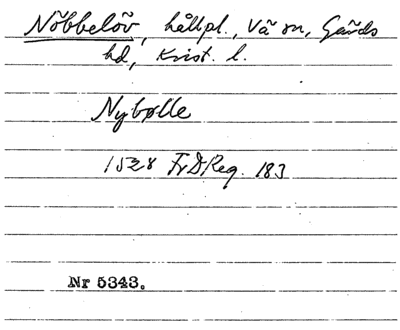 Nöbbelöv, hållpl., Vä sn, Gärds
hd, Krist. l.
Nybølle
1528 FrDReg. 183
Nr 5343.